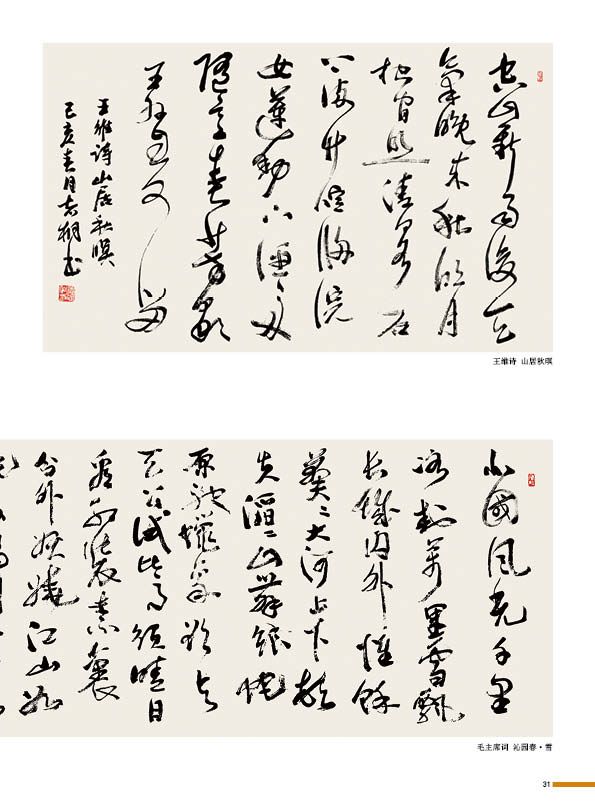 空山新雨後天
氣晚来秋明月
松间照清泉石
上流竹喧归浣
女莲动下渔舟
随意春芳歇
王孙自可留
王维诗山居秋暝
己亥春月志书
王维诗 山居秋暝
北國风光千里
冰封万里雪飘
长城内外惟餘
莽々大河上下顿
失滔々山舞银蛇
原驰蜡象欲与
天公试比高须晴日
看红装素裹
分外妖娆江山如
毛主席词 沁园春·雪
31